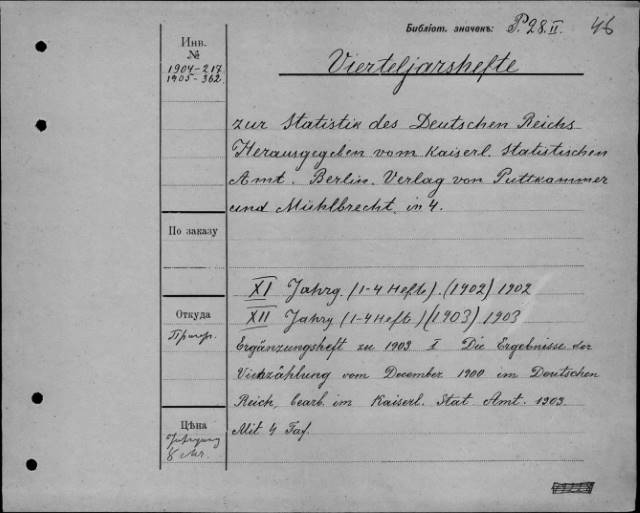 Библіот. значекъ: P. 28. II. 46
Инв.
№
1904-217
1905-362
Vierteljarshefte
zur Statistik des Deutschen Reichs
Herausgegeben vom Kaiserl. Statistischen
Amt. Berlin. Verlag von Puttkammer
und Mühlbrecht, in 4.
По заказу
XI Jahrg. (1-4 Heft). (1902) 1902
Откуда
XII Jahrg (1-4 Heft.) (1903) 1903
Ergänzungsheft zu 1903 I Die Ergebnisse der
Viehzählung vom December 1900 im Deutschen
Reich, bearb. im Kaiserl. Stat Amt. 1903.
Цѣна
Mit 4 Taf.
8 Mr.